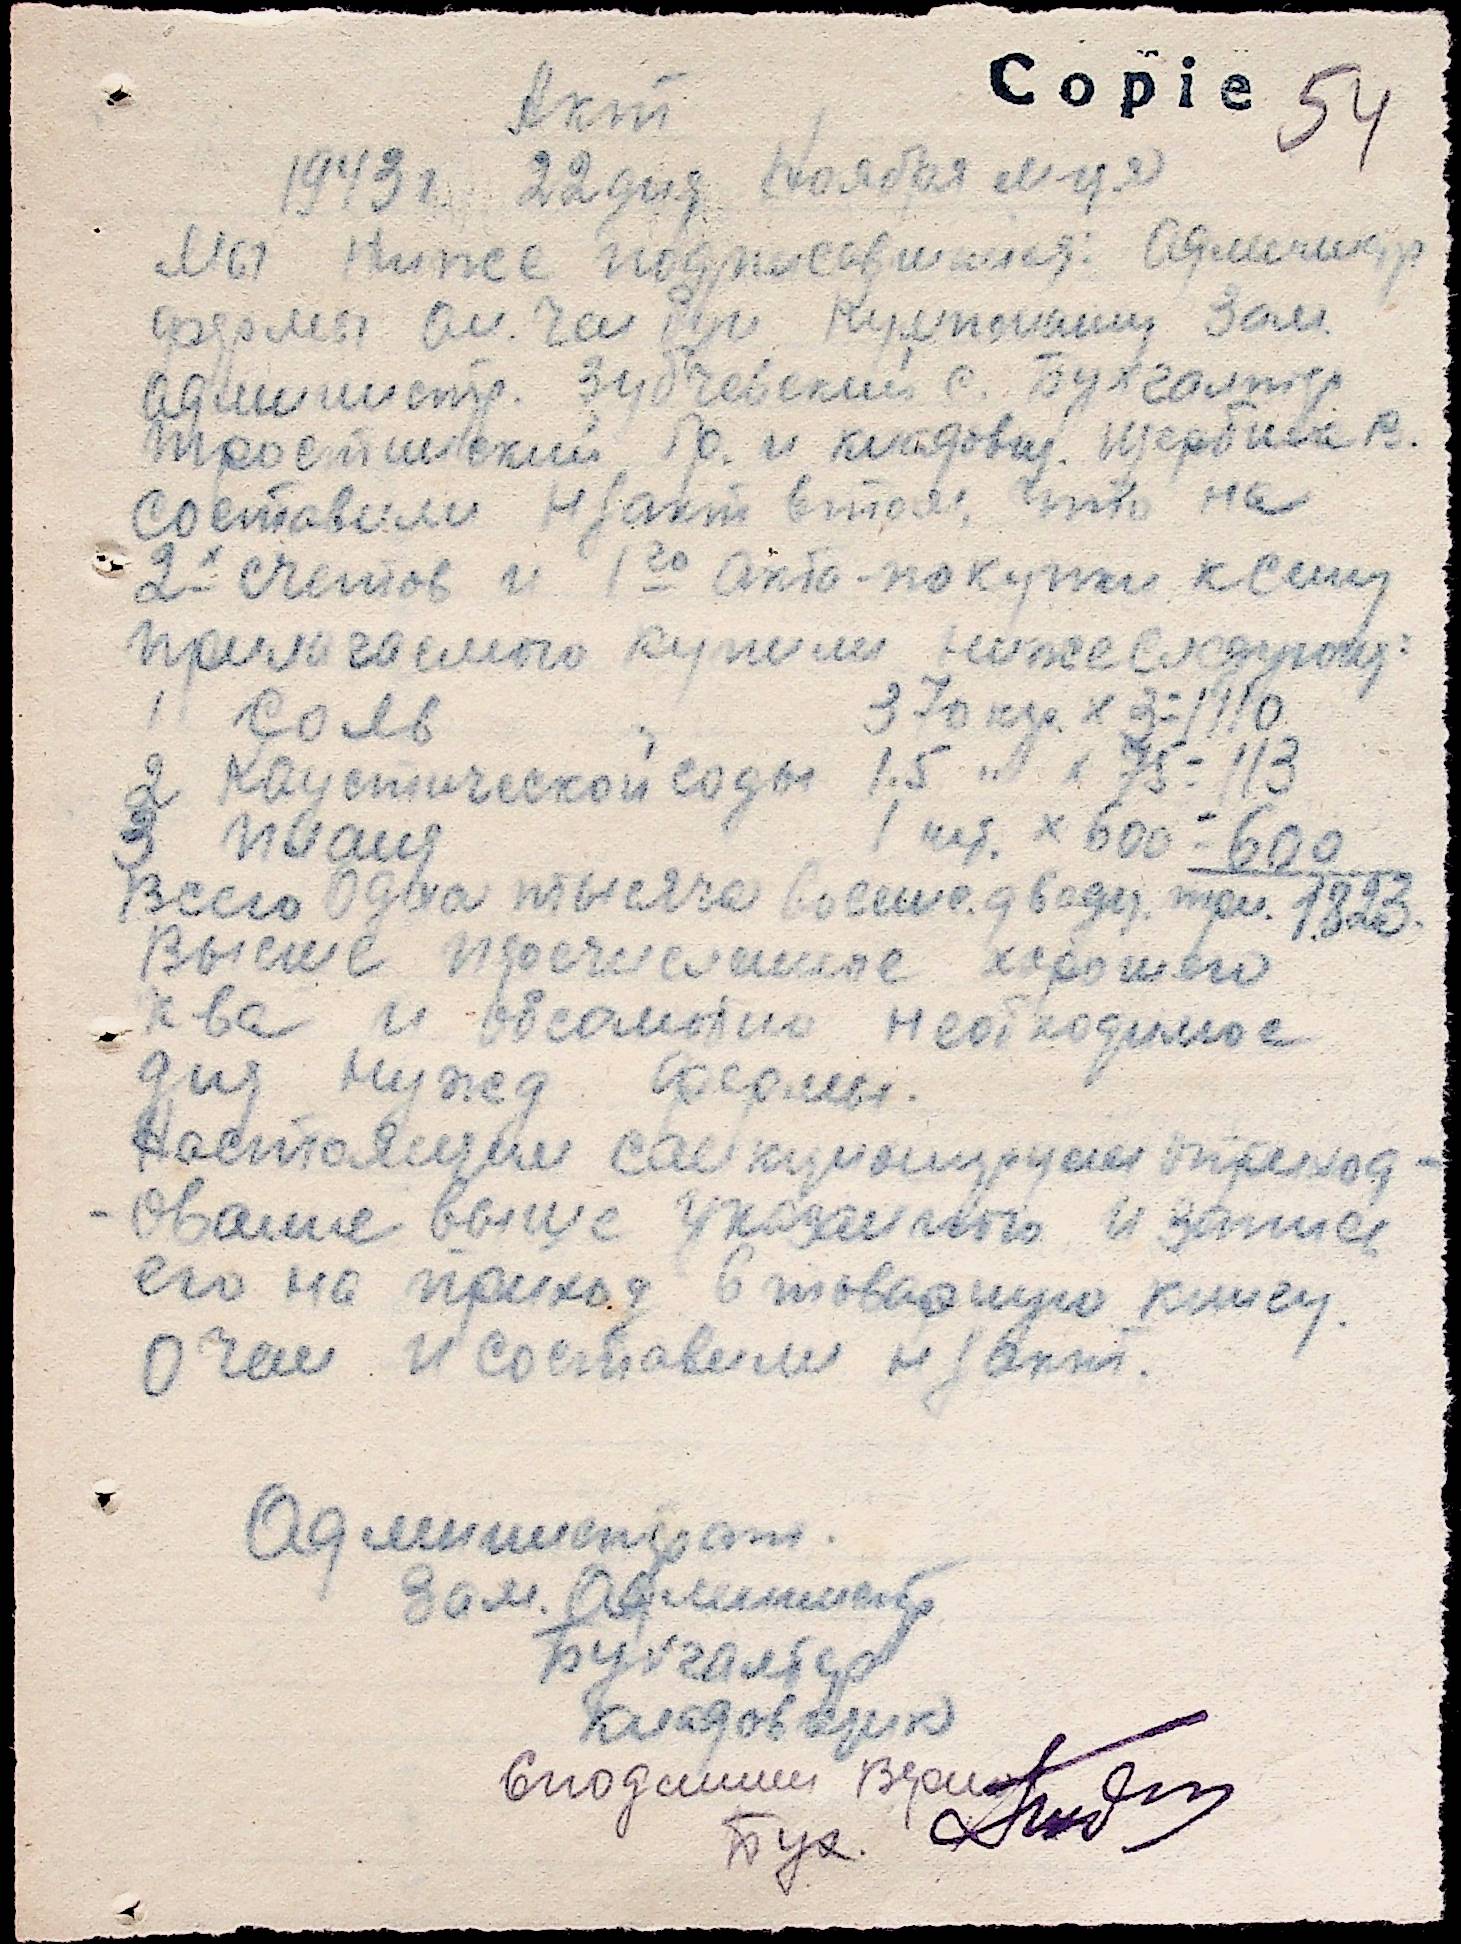 Copie 54
Акт
1943 г. 22 дня Ноября м-ця
Мы Ниже подписавшияся: Админикр
фермы Зам.
администр. Зубчевский С. Бухгалтер
Тростинский Гр. и кладовщ. Щербина В.
составили н/акт в том, что на
2-х счетов и 1го акта-покупки к сему
прилагаемого купили нижеследующ:
1 Соль " 370 кгр. х 3=1110
2 Каустической соды 1.5 " х 75=113
3 1 шт. х 600=600
Всего Одна тысяча восемс. двадц. три. 1823.
Выше прочисленное хорошего
к-ва и абсолютно необходимое
для нужд фермы.
Настоящим оприход-
-ование выше указанного и запись
его на приход в товарную книгу.
О чем и составили н/акт.
Администрат.
Зам. Администр
Бухгалтер
кладовщик
Сподлинным Верно
Бух.